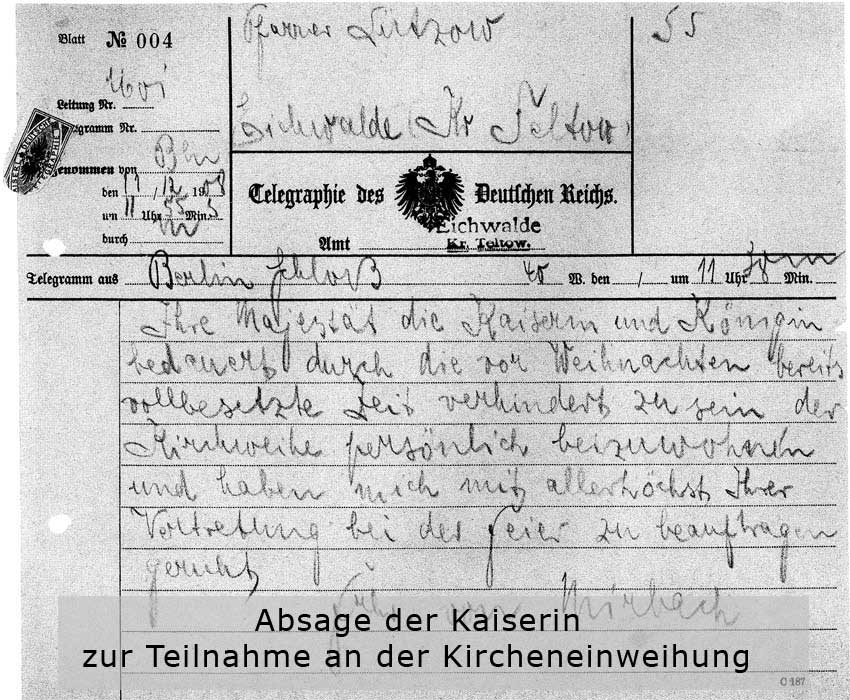 Blatt № 004
Pfarrer Lützow
55
Leitung Nr.
Telegramm Nr.
Eichwalde (Kr Teltow)
genommen von Bln
den 11/12 1908
um 11 Uhr 55 Min.
durch
Telegraphie des Deutschen Reichs.
Amt Eichwalde
Kr. Teltow.
Telegramm aus Berlin Schloß 40 W. den / um 11 Uhr Min.
Ihre Majestät die Kaiserin und Königin
bedauert durch die vor Weihnachten bereits
vollbesetzte Zeit verhindert zu sein der
Kirchweihe persönlich beizuwohnen
und haben mich mit allerhöchst Ihrer
Vertretung bei der Feier zu beauftragen
geruht
Frhr von Mirbach
Absage der Kaiserin
zur Teilnahme an der Kircheneinweihung
C 187